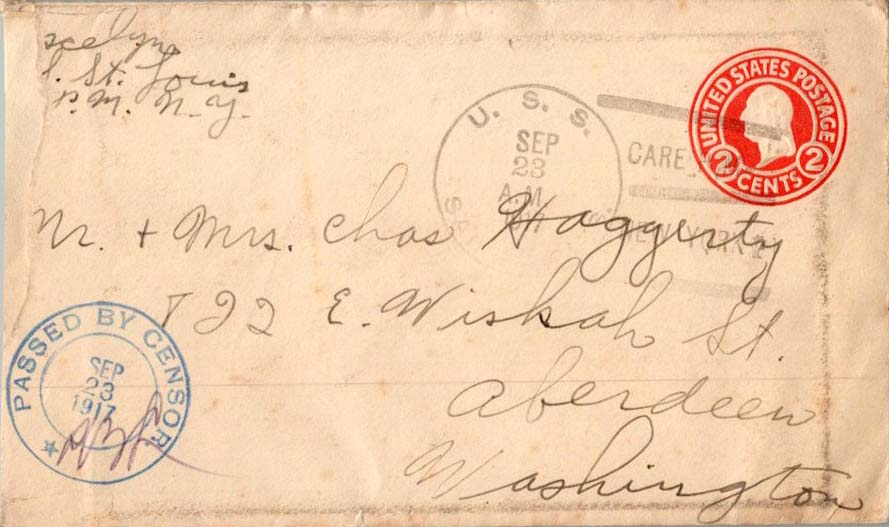 scelyne
S. St. Louis
P. M. N. Y.
UNITED STATES POSTAGE
2 CENTS 2
U. S. S.
SEP
23
A.M.
1917
CARE
NEW YORK
Mr. + Mrs. Chas Haggerty
822 E. Wiskah St.
Aberdeen
Washington
PASSED BY CENSOR
SEP
23
1917